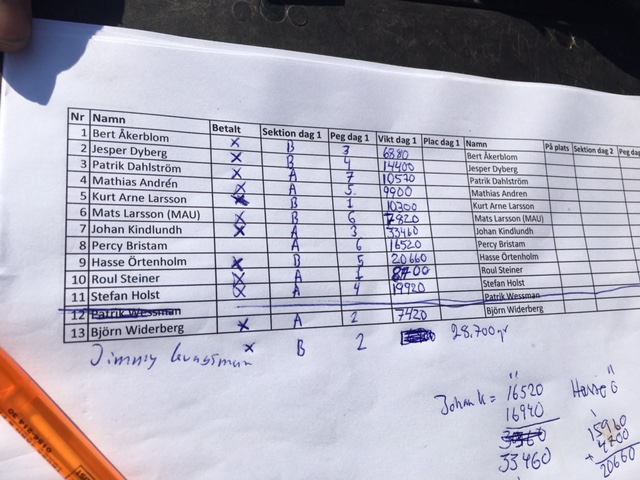 Nr Namn Betalt Sektion dag 1 Peg dag 1 Vikt dag 1 Plac dag 1 Namn På plats Sektion dag 2 Peg dag
1 Bert Åkerblom x B 3 6880 Bert Åkerblom
2 Jesper Dyberg x B 4 14400 Jesper Dyberg
3 Patrik Dahlström x A 7 10570 Patrik Dahlström
4 Mathias Andrén x A 5 9900 Mathias Andren
5 Kurt Arne Larsson x B 1 10200 Kurt Arne Larsson
6 Mats Larsson (MAU) x B 6 7820 Mats Larsson (MAU)
7 Johan Kindlundh x A 3 33460 Johan Kindlundh
8 Percy Bristam A 6 16520 Percy Bristam
9 Hasse Örtenholm x B 5 20660 Hasse Örtenholm
10 Roul Steiner x A 1 8700 Roul Steiner
11 Stefan Holst x A 4 19920 Stefan Holst
12 Patrik Wessman Patrik Wessman
13 Björn Widerberg x A 2 7420 Björn Widerberg
Jimmy x B 2 28.700 gr
Johan K = 16520
16940
33460
Hasse Ö
15960
+ 4700
20660